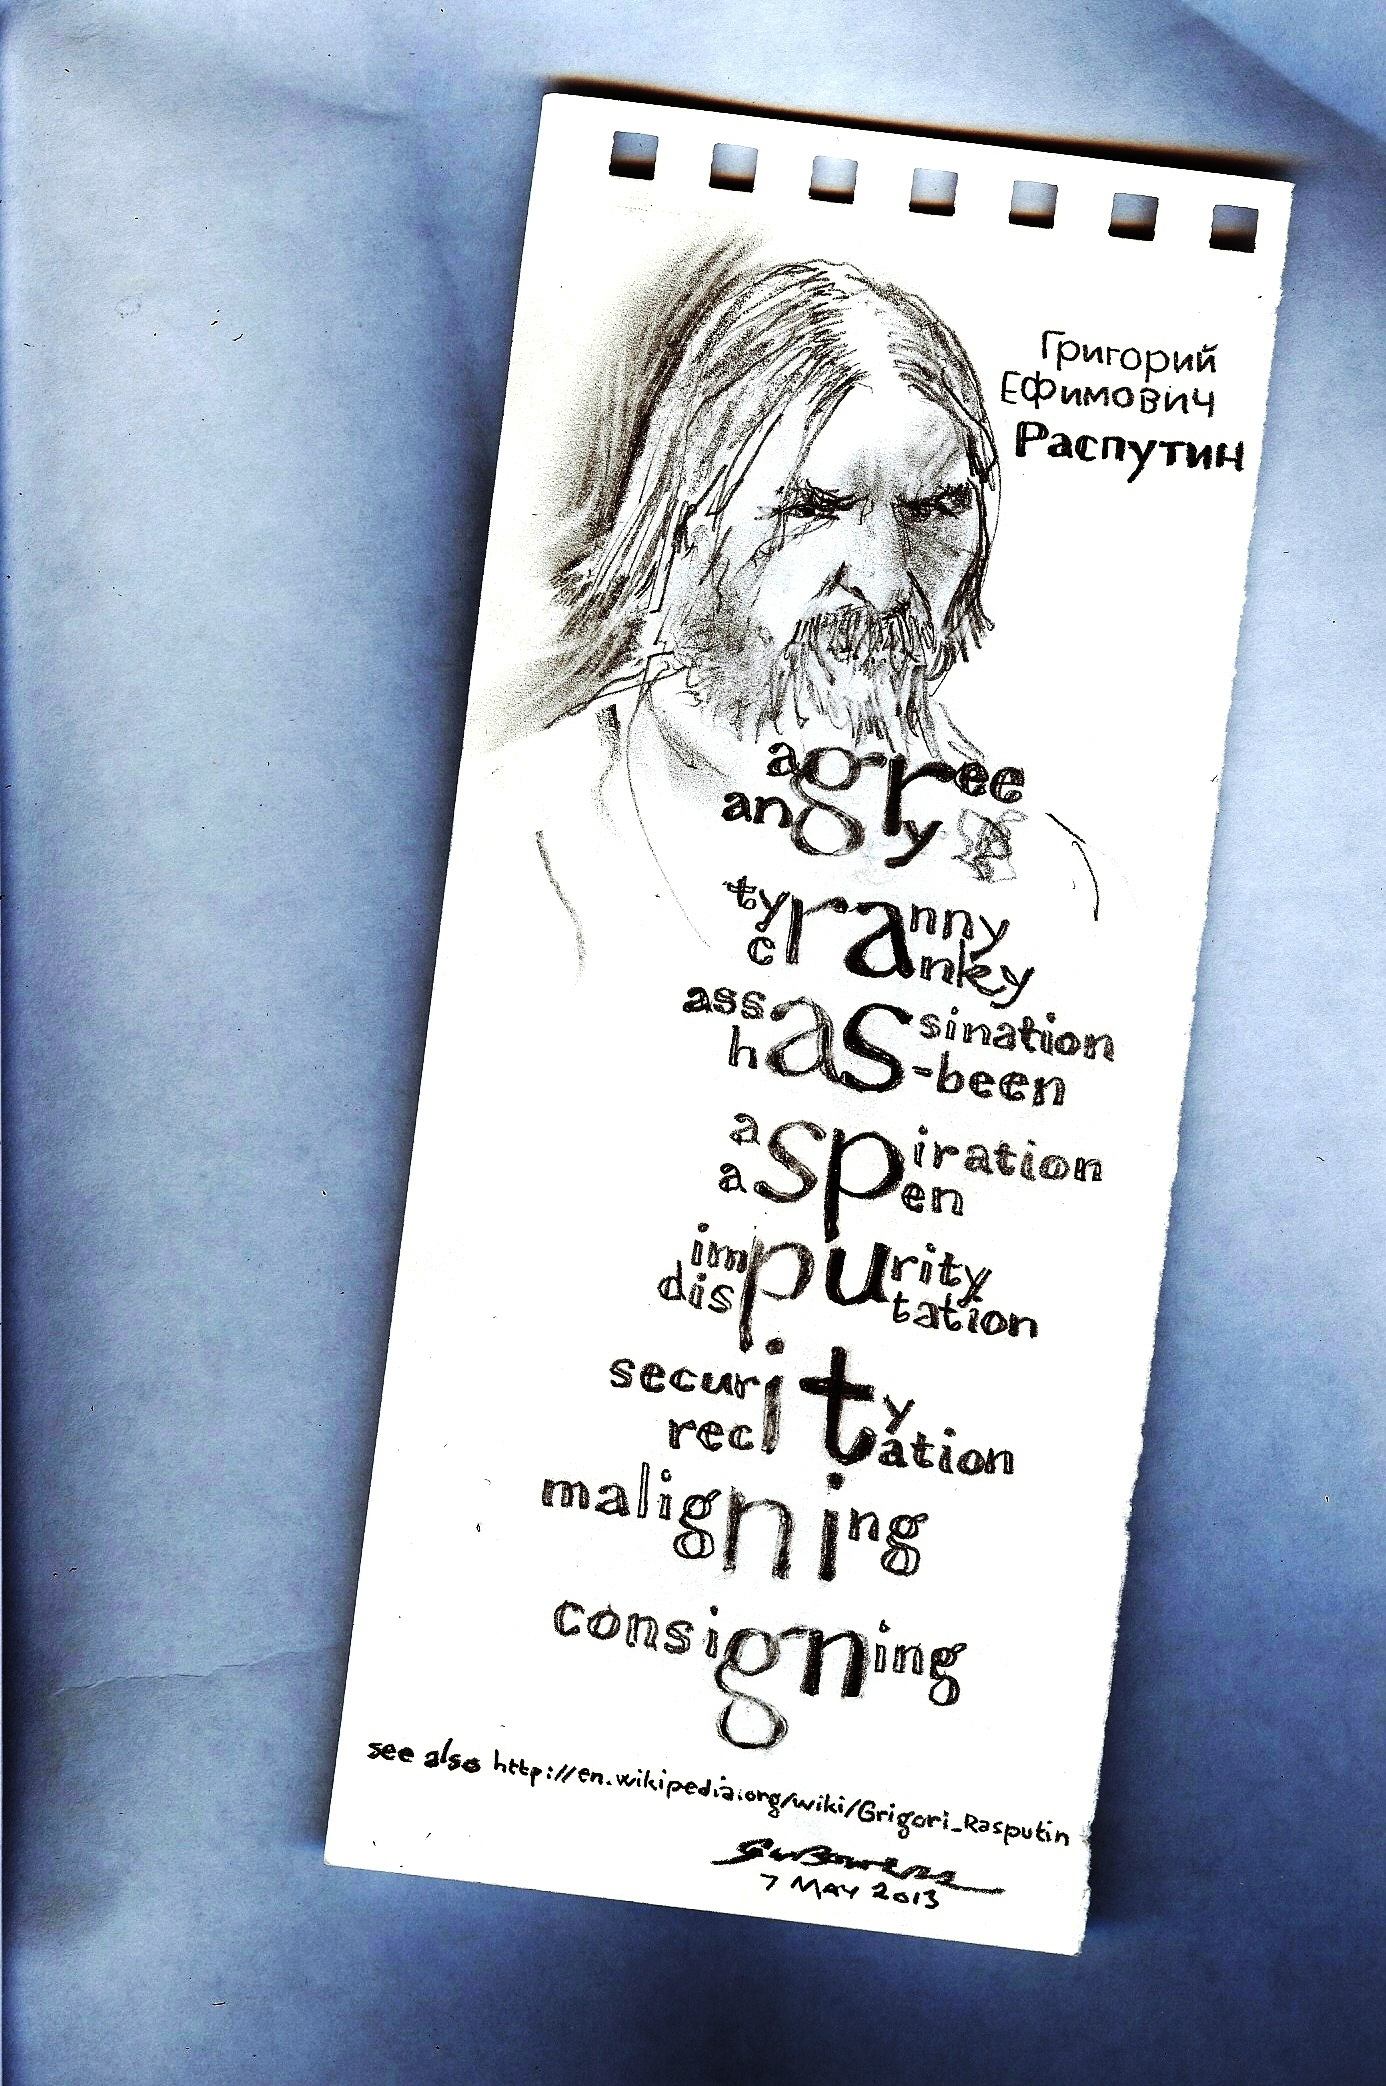 Григорий
Ефимович
Распутин
agree
angry
tyranny
cranky
assassination
has-been
aspiration
aspen
impurity
disputation
security
recitation
maligning
consigning
see also http://en.wikipedia.org/wiki/Grigori_Rasputin
7 MAY 2013